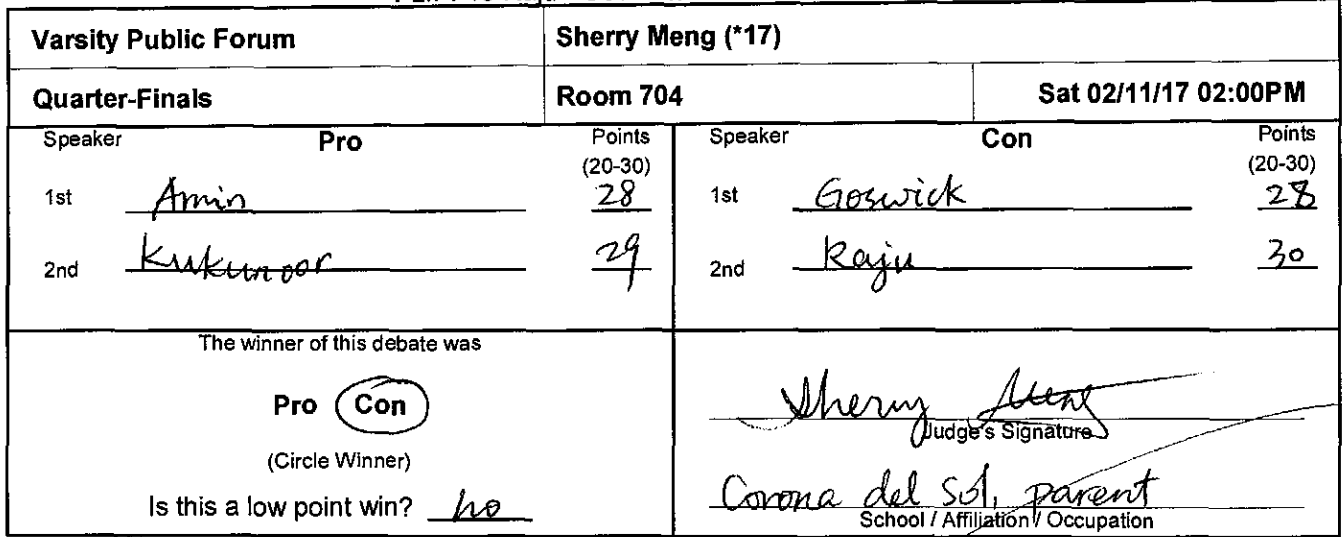 Varsity Public Forum Sherry Meng (*17)
Quarter-Finals Room 704 Sat 02/11/17 02:00PM
Speaker Pro Points
(20-30)
1st Amin 28
2nd Kukunoor 29
Speaker Con Points
(20-30)
1st Goswick 28
2nd Raju 30
The winner of this debate was
Pro Con
(Circle Winner)
Is this a low point win? no
Sherry Meng
Judge's Signature
Corona del Sol, parent
School / Affiliation / Occupation